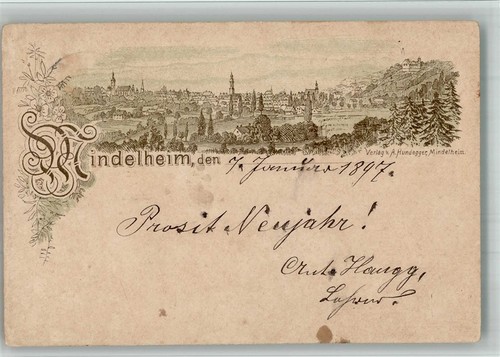 Verlag v. A. Hundegger, Mindelheim.
Mindelheim, den 7. Januar 1897.
Prosit Neujahr!
Haugg,